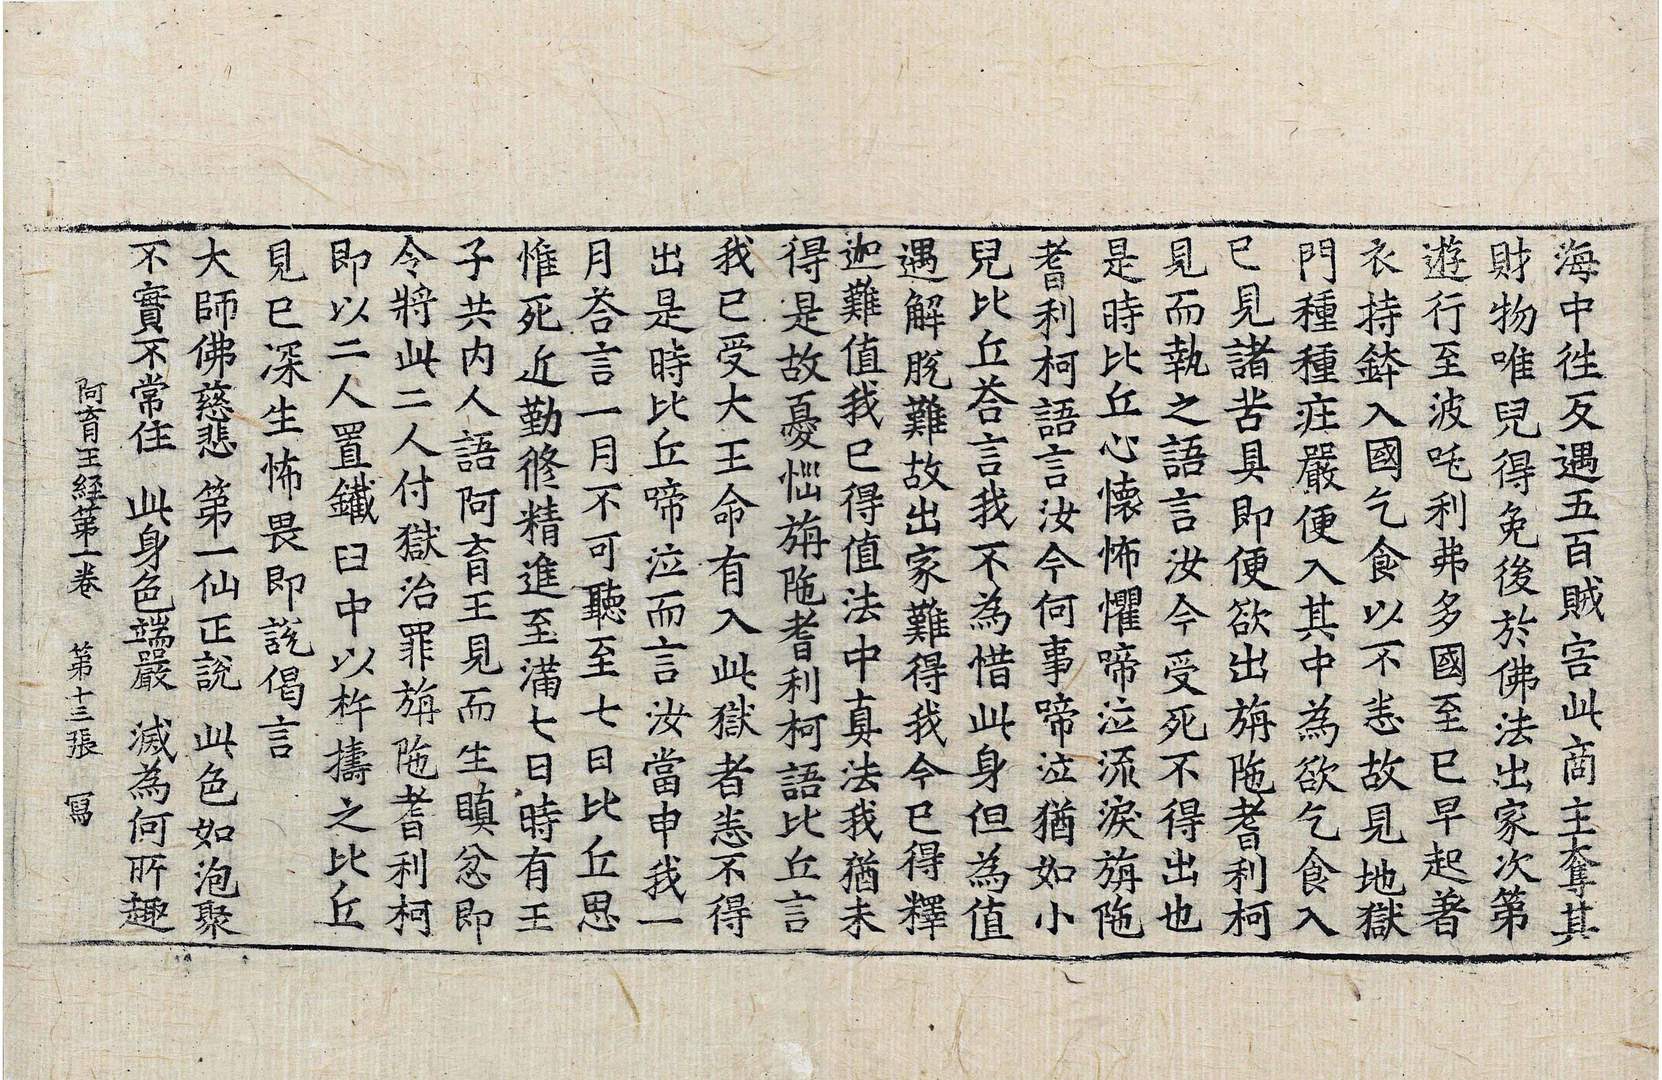 海中徃反遇五百賊害此商主奪其
財物唯兒得免後於佛法出家次第
遊行至波吒利弗多國至已早起著
衣持鉢入國乞食以不悉故見地獄
門種種庄嚴便入其中為欲乞食入
已見諸苦具即便欲出旃陁耆利柯
見而執之語言汝今受死不得出也
是時比丘心懷怖懼啼泣流淚旃陁
耆利柯語言汝今何事啼泣猶如小
兒比丘荅言我不為惜此身但為值
遇解脫難故出家難得我今已得釋
迦難值我已得值法中真法我猶未
得是故憂惱旃陁耆利柯語比丘言
我已受大王命有入此獄者悉不得
出是時比丘啼泣而言汝當申我一
月荅言一月不可聽至七日比丘思
惟死近勤修精進至滿七日時有王
子共内人語阿育王見而生瞋忿即
令將此二人付獄治罪旃陁耆利柯
即以二人置鐵臼中以杵擣之比丘
見已深生怖畏即說偈言
大師佛慈悲　第一仙正說　此色如泡聚
不實不常住　此身色端嚴　滅為何所趣
阿育王経第一卷　第十三張　寫